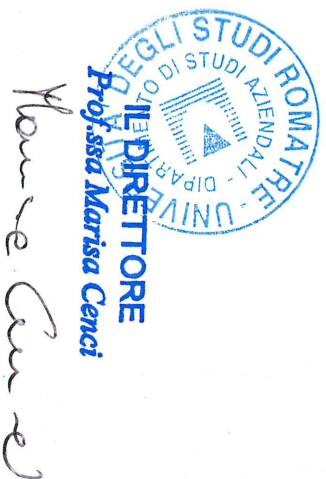 UNIVERSITÀ DEGLI STUDI ROMA TRE -
DIPARTIMENTO DI STUDI AZIENDALI -
IL DIRETTORE
Prof.ssa Marisa Cenci